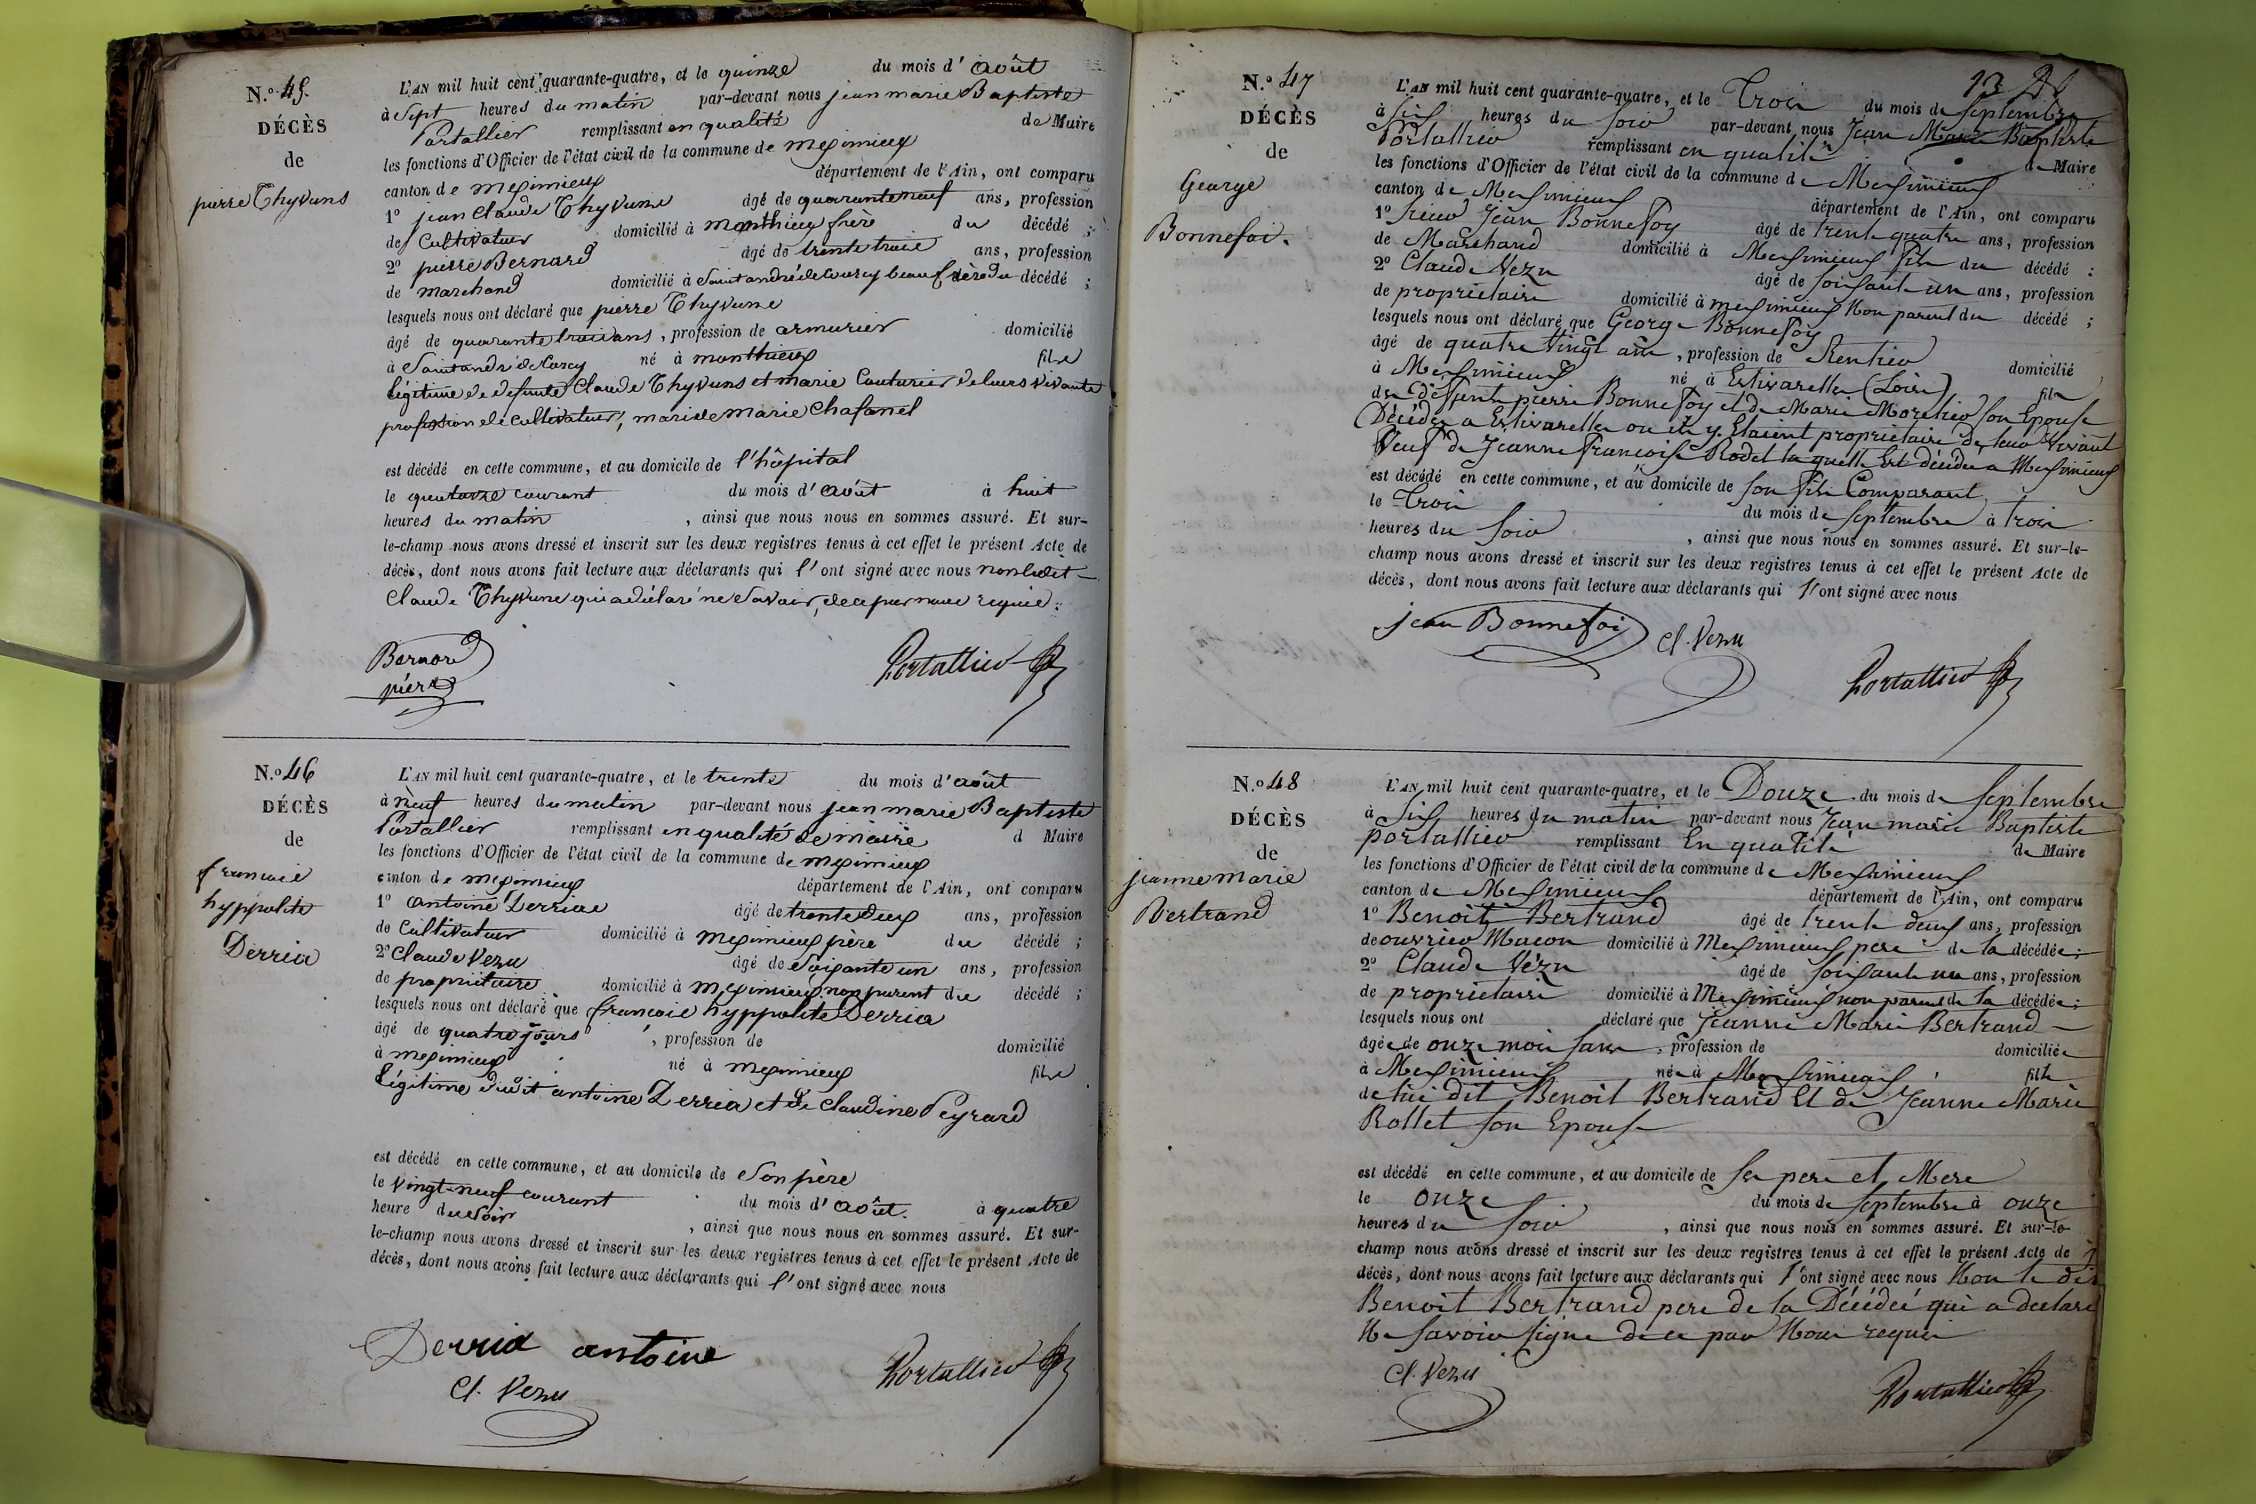 N.o 45.
DÉCÈS
de
pierre Thyvuns
L'AN mil huit cent quarante-quatre, et le quinze du mois d' Août
à Sept heures du matin par-devant nous jean marie Baptiste
Portallier remplissant en qualité de Maire
les fonctions d'Officier de l'état civil de la commune de meximieux
canton de meximieux département de l'Ain, ont comparu
1o jean Claude Thyvune âgé de quaranteneuf ans, profession
de Cultivateur domicilié à monthieux frère du décédé ;
2o pierre Bernard âgé de trente trois ans, profession
de marchand domicilié à Saint andré de Corcy beaufrère du décédé ;
lesquels nous ont déclaré que pierre Thyvune
âgé de quarante trois ans, profession de armurier domicilié
à Saint andré de Corcy né à monthieux fils
légitime de defunts Claude Thyvuns et marie Couturier de leurs vivants
profession de Cultivateur, mari de marie Chafanel
est décédé en cette commune, et au domicile de l'hôpital
le quatorze courant du mois d' Août à huit
heures du matin , ainsi que nous nous en sommes assuré. Et sur-
le-champ nous avons dressé et inscrit sur les deux registres tenus à cet effet le présent Acte de
décès, dont nous avons fait lecture aux déclarants qui l' ont signé avec nous non ledit
Claude Thyvune qui a déclaré ne Savoir, de ce par nous requis.
Bernard
pierre
Portallier
N.o 46
DÉCÈS
de
francois
hyppolite
Derria
L'AN mil huit cent quarante-quatre, et le trente du mois d' août
à neuf heures du matin par-devant nous jean marie Baptiste
Portallier remplissant en qualité de maire d Maire
les fonctions d'Officier de l'état civil de la commune de meximieux
canton de meximieux département de l'Ain, ont comparu
1o antoine Derriae âgé de trente deux ans, profession
de Cultivateur domicilié à meximieux père du décédé ;
2o Claude Vezu âgé de Soixante un ans, profession
de propriétaire domicilié à meximieux non parent du décédé ;
lesquels nous ont déclaré que francois hyppolite Derria
âgé de quatre jours , profession de domicilié
à meximieux né à meximieux fils
légitime dudit antoine Derria et de Claudine Peyrard
est décédé en cette commune, et au domicile de Son père
le Vingt-neuf courant du mois d' Août. à quatre
heure du Soir , ainsi que nous nous en sommes assuré. Et sur-
le-champ nous avons dressé et inscrit sur les deux registres tenus à cet effet le présent Acte de
décès, dont nous avons fait lecture aux déclarants qui l' ont signé avec nous
Derria antoine
Cl. Vezu
Portallier
13
N.o 47
DÉCÈS
de
George
Bonnefoi.
L'AN mil huit cent quarante-quatre, et le Trois du mois de Septembre
à Six heures du Soir par-devant nous Jean Marie Baptiste
Portallier remplissant en qualité de Maire
les fonctions d'Officier de l'état civil de la commune de Meximieux
canton de Meximieux département de l'Ain, ont comparu
1o Sieur Jean Bonnefoy âgé de trente quatre ans, profession
de Marchand domicilié à Meximieux fils du décédé ;
2o Claude Vezu âgé de Soixante un ans, profession
de propriétaire domicilié à meximieux Non parent du décédé ;
lesquels nous ont déclaré que George Bonnefoy
âgé de quatre Vingt ans , profession de Rentier domicilié
à Meximieux né à Estivareilles (Loire) fils
de deffunts pierre Bonnefoy et de Marie Moretier son Epouse
Décédés a Estivareilles ou ils y Etaient propriétaire de leur Vivant
Veuf de Jeanne Francoise Rodet la quelle Est décédée a Meximieux
est décédé en cette commune, et au domicile de son fils Comparant
le Trois du mois de Septembre à trois
heures du Soir , ainsi que nous nous en sommes assuré. Et sur-le-
champ nous avons dressé et inscrit sur les deux registres tenus à cet effet le présent Acte de
décès, dont nous avons fait lecture aux déclarants qui l'ont signé avec nous
jean Bonnefoi
Cl. Vezu
Portallier
N.o 48
DÉCÈS
de
jeanne marie
Bertrand
L'AN mil huit cent quarante-quatre, et le Douze du mois de Septembre
à Six heures du matin par-devant nous Jean marie Baptiste
portallier remplissant En qualité de Maire
les fonctions d'Officier de l'état civil de la commune de Meximieux
canton de Meximieux département de l'Ain, ont comparu
1o Benoit Bertrand âgé de trente deux ans, profession
de ouvrier Macon domicilié à Meximieux pere de la décédée ;
2o Claude Vézu âgé de Soixante un ans, profession
de propriétaire domicilié à Meximieux non parent de la décédée ;
lesquels nous ont déclaré que Jeanne Marie Bertrand
âgée de onze mois sans , profession de domiciliée
à Meximieux née à Meximieux fille
de sus dit Benoit Bertrand Et de Jeanne Marie
Rollet son Epouse
est décédé en cette commune, et au domicile de ses pere et Mere
le onze du mois de Septembre à onze
heures du Soir , ainsi que nous nous en sommes assuré. Et sur-le-
champ nous avons dressé et inscrit sur les deux registres tenus à cet effet le présent Acte de
décès, dont nous avons fait lecture aux déclarants qui l'ont signé avec nous Non le dit
Benoit Bertrand pere de la Décédeé qui a declaré
Ne Savoir Signe de ce par Nous requis
Cl. Vezu
Portallier